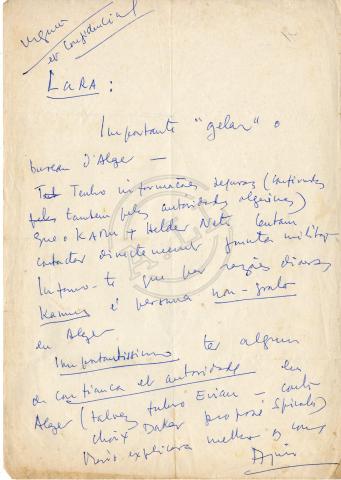 urgent
et confidencial
LARA :
Importante "gelar" o
bureau d'Alger —
Tenho informações seguras (confirmadas
pelas tambem pelas autoridades algerinas)
que o KARIM + Helder Neto tentam
contactar directement juntas militar
Informo-te que por razões diversas
Kamus é persona non-grata
en Alger
Importantissimo ter alguem
de confiança et autoridade en
Alger (talvez tulio Evian — contr
choix Dakar proposé Spirale)
explicara melhor